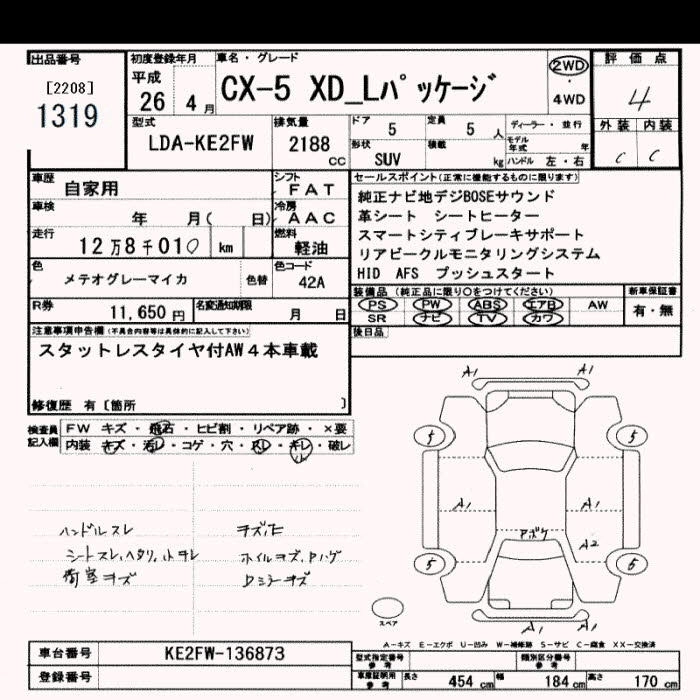 出品番号
[2208]
1319
初度登録年月
平成
26 4月
車名・グレード
CX-5 XD_Lパッケージ
2WD
・
4WD
評価点
4
型式
LDA-KE2FW
排気量
2188 cc
ドア 5
定員 5 人
形状 SUV
積載 kg
ディーラー・並行
モデル年式 年
ハンドル 左・右
外装 内装
C C
車歴 自家用
シフト FAT
車検 年 月( 日)
冷房 AAC
走行 12万8千010 km
燃料 軽油
色 メテオグレーマイカ 色替
色コード 42A
R券 11,650 円
名変通知期限 月 日
セールスポイント(正常に機能するものに限ります)
純正ナビ地デジBOSEサウンド
革シート シートヒーター
スマートシティブレーキサポート
リアビークルモニタリングシステム
HID AFS プッシュスタート
装備品 (純正品に限り○をつけてください)
PS PW ABS エアB AW
SR ナビ TV カワ
新車保証書
有・無
後日品
注意事項申告欄(不具合内容等は具体的に記入して下さい)
スタットレスタイヤ付AW4本車載
修復歴 有〔箇所 〕
検査員記入欄
FW キズ・飛石・ヒビ割・リペア跡・×要
内装 キズ・汚レ・コゲ・穴・スレ・キレ・破レ
ハンドルスレ
シートスレ、ヘタリ、小ヨレ
キズ、E
ホイルキズ、Pハゲ
Dミラーキズ
A1 A1
5 5
A1 A1
Pボケ
A2
5 6
A1 A1
スペア
A-キズ E-エクボ U-凹み W-補修跡 S-サビ C-腐食 XX-交換済
車台番号 KE2FW-136873
登録番号
型式指定番号 参考
類別区分番号 参考
車庫証明用 参考
長さ 454 cm
幅 184 cm
高さ 170 cm